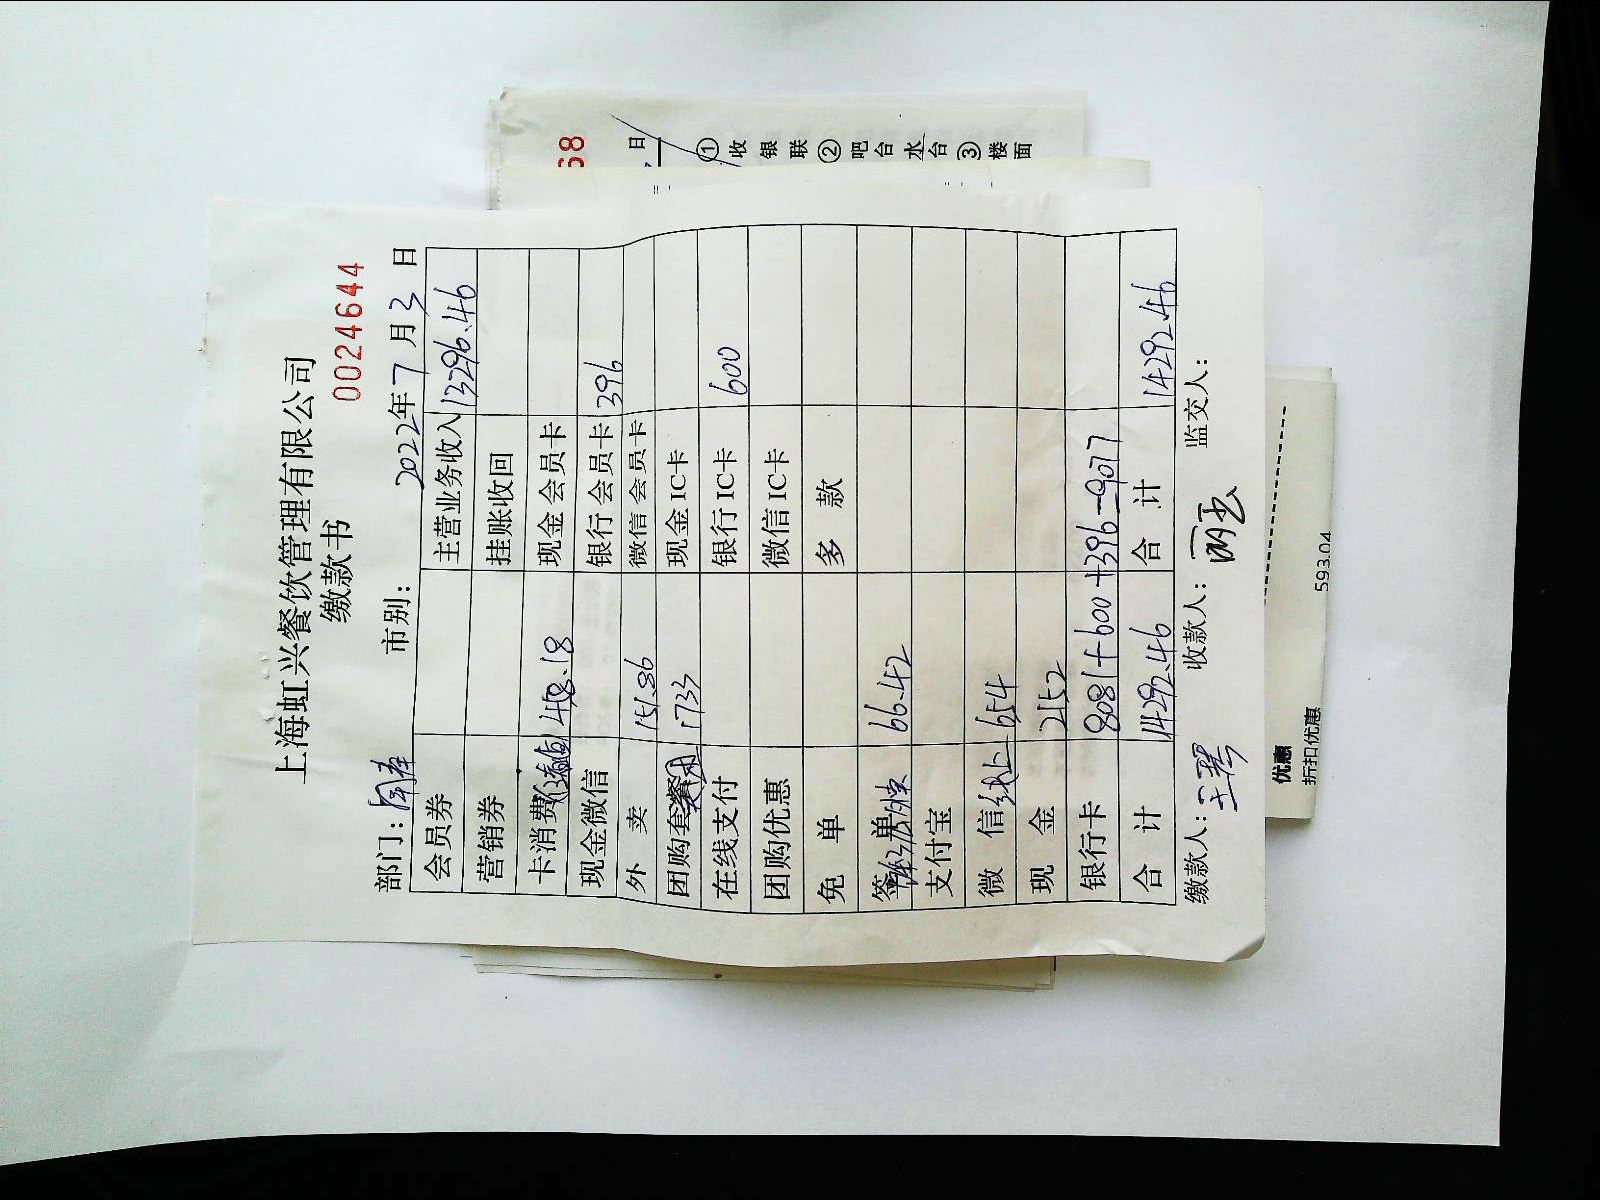 上海虹兴餐饮管理有限公司
缴款书
0024644
部门: 市别: 2022年7月3日
会员券 主营业务收入 13296.46
营销券 挂账收回
卡消费 458.18 现金会员卡
现金微信 银行会员卡 396
外卖 151.86 微信会员卡
团购套餐 1733 现金IC卡
在线支付 银行IC卡 600
团购优惠 微信IC卡
免单 多款
签单 66.42
支付宝
微信 线上 654
现金 2152
银行卡 8081+600+396=9077
合计 14292.46 合计 14292.46
缴款人: 收款人: 监交人:
68
日
①收银联②吧台水台③楼面
优惠
折扣优惠 593.04